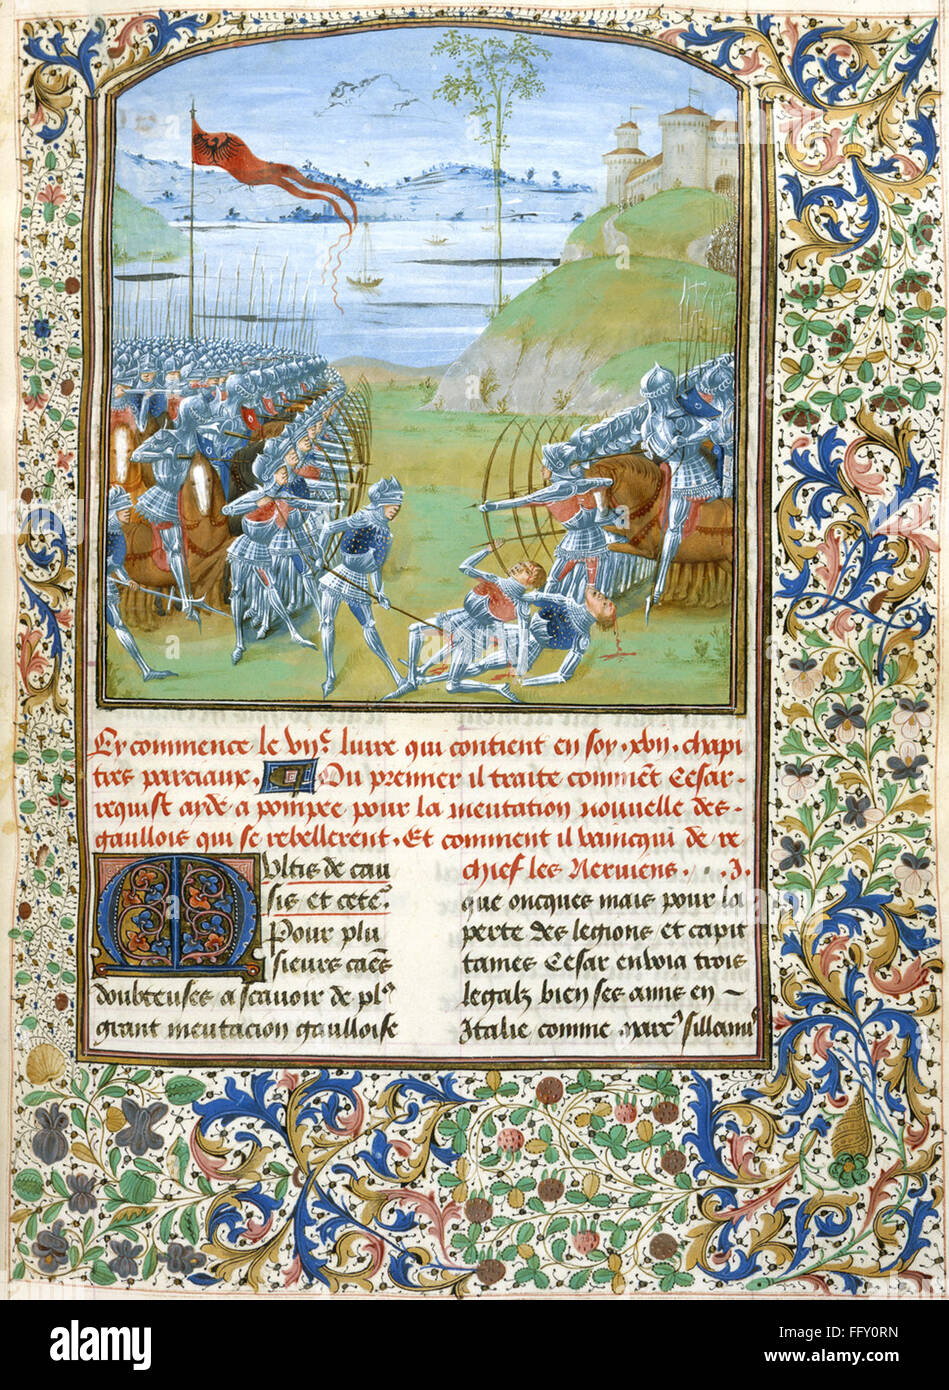 Cy commence le vii.e liure qui contient en soy .xvii. chapi
tres parciaux. Du premier il traite comment Cesar
requist aide a pompee pour la meutation nouuelle des
gaullois qui se rebellerent. Et comment il vainqui de re
chief les Neruiens. .J.
Multis de cau
sis et cete.
Pour plu
sieurs caũes
doubteuses a scauoir de pl9
grant meutacion gaulloise
que oncques mais pour la
perte des legions et capit
taines Cesar enuoia trois
legatz bien ses amis en
Italie comme Marc9 sillanus
alamy
Image ID: FFY0RN
www.alamy.com